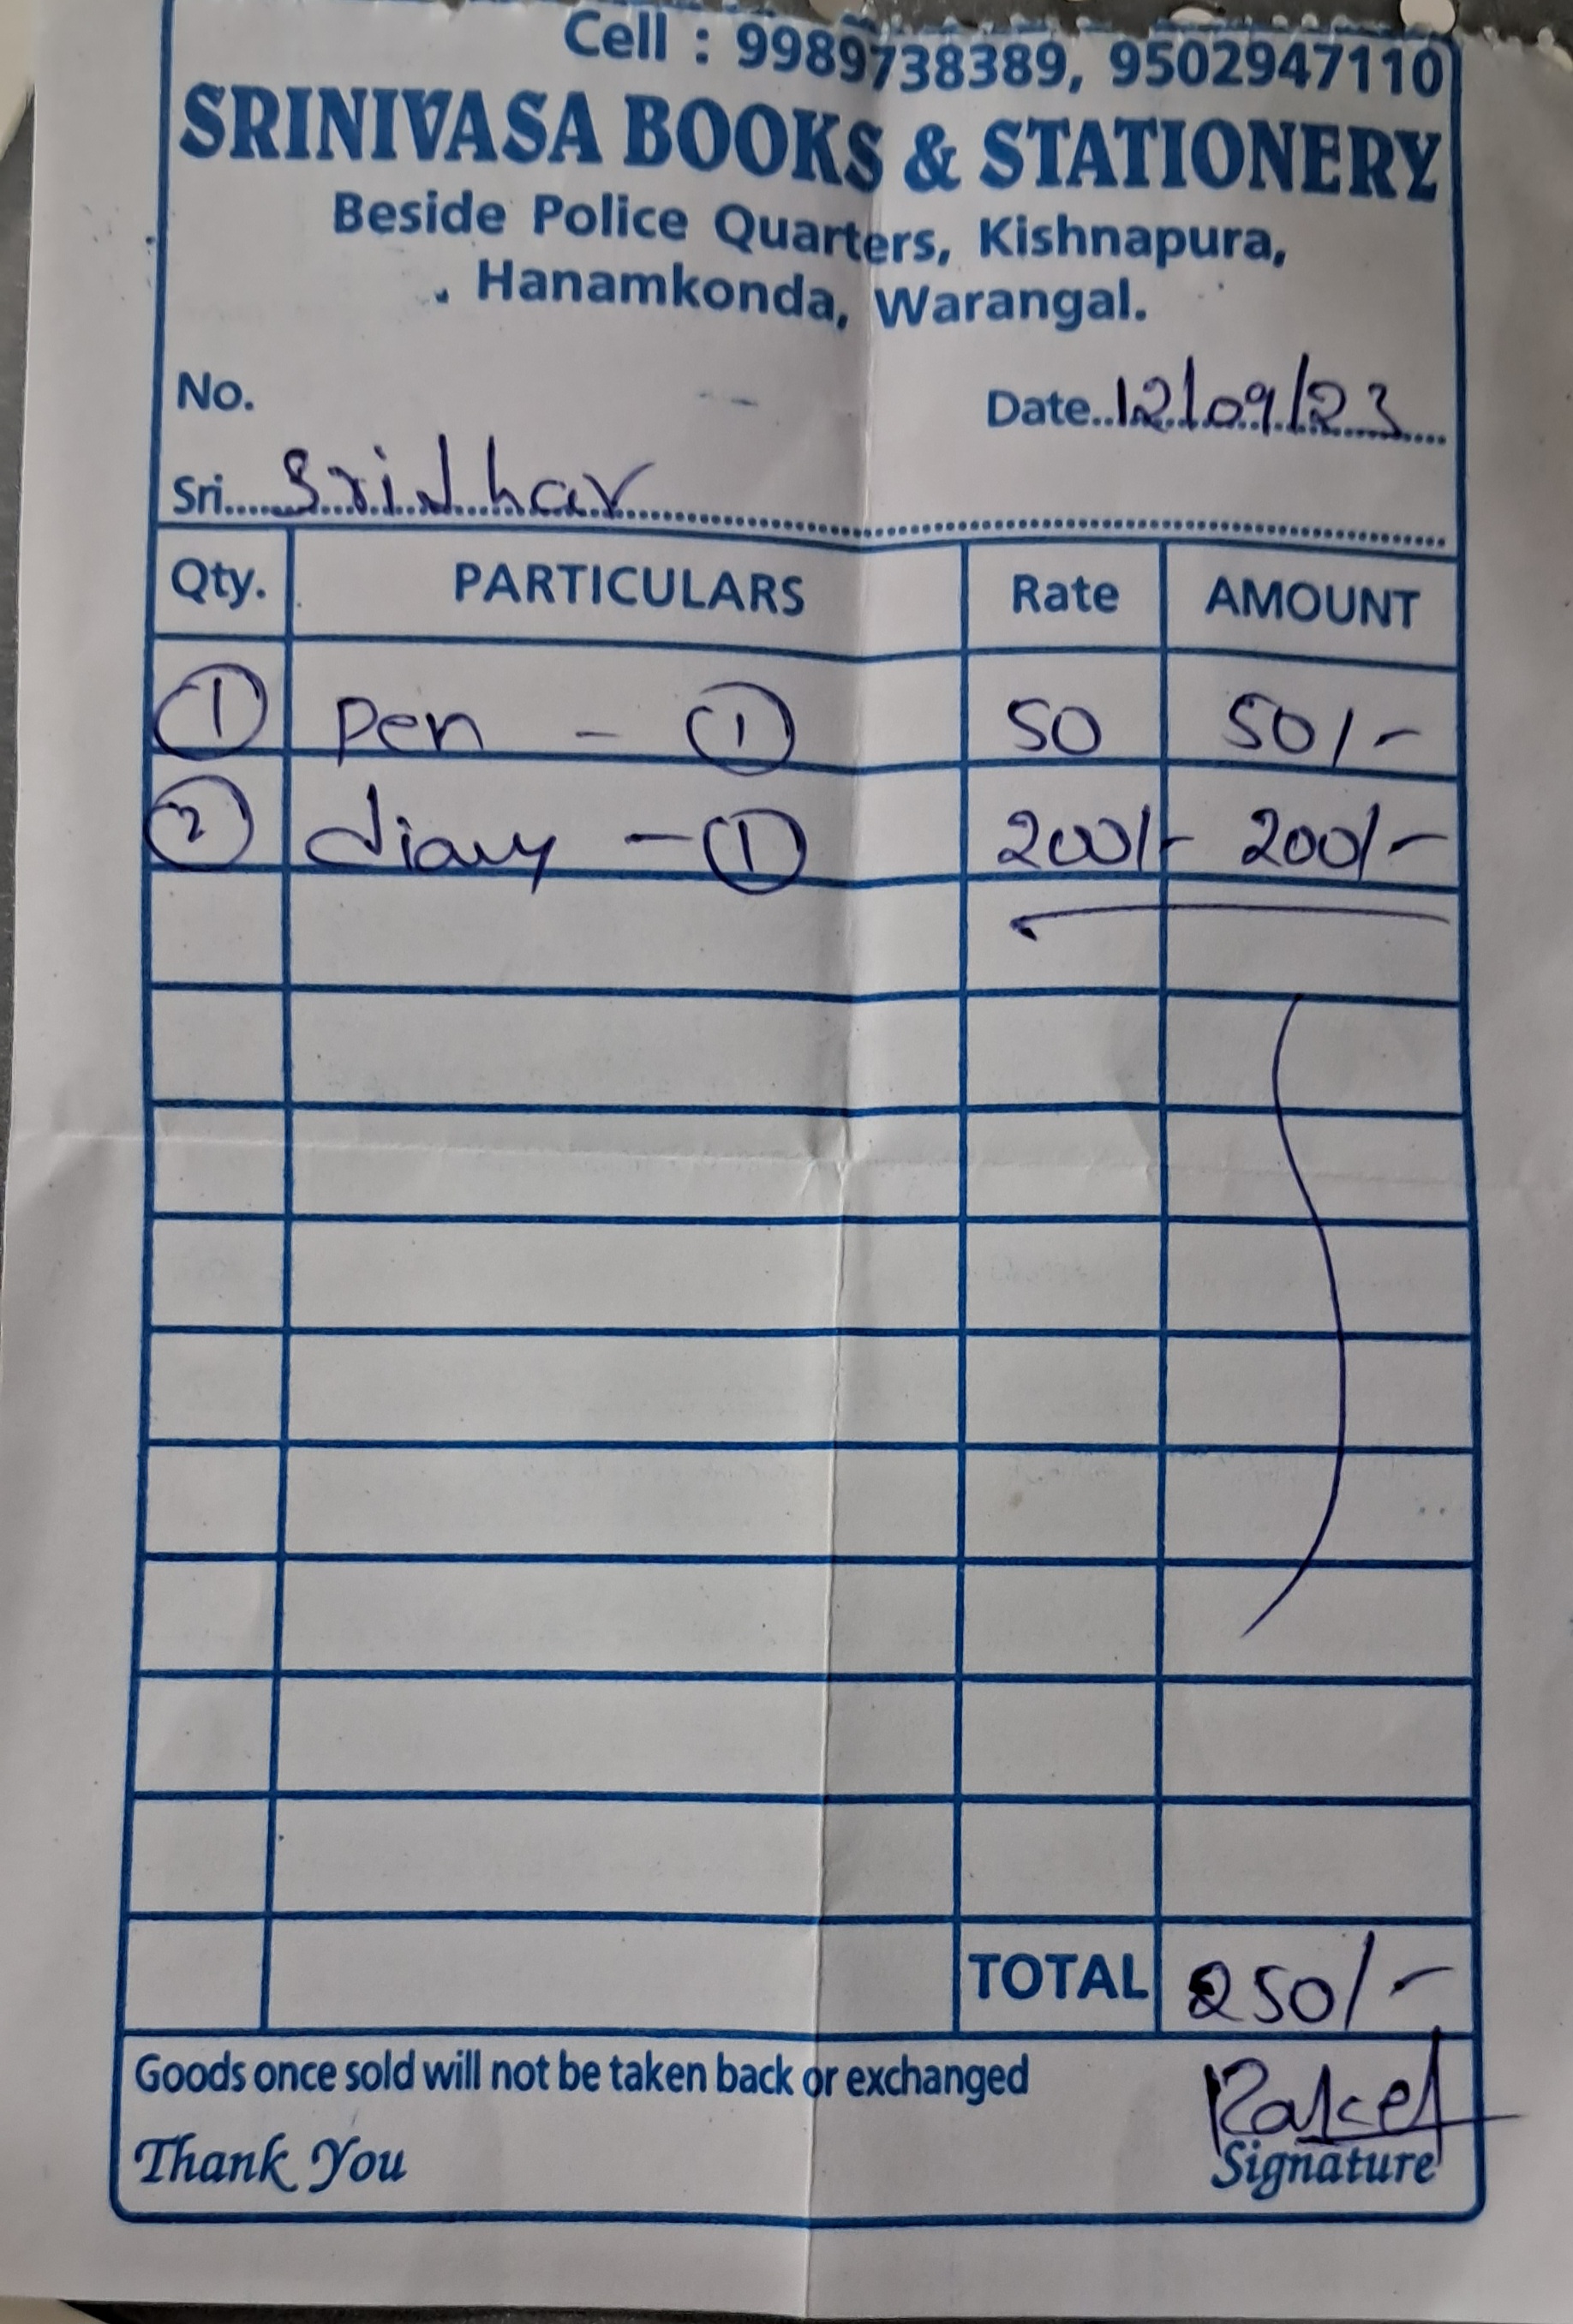 Cell : 9989738389, 9502947110
SRINIVASA BOOKS & STATIONERY
Beside Police Quarters, Kishnapura,
Hanamkonda, Warangal.
No.
Date..12/09/23
Sri....Sridhar
Qty. PARTICULARS Rate AMOUNT
1 pen - 1 50 50/-
2 diary - 1 200/- 200/-
TOTAL 250/-
Goods once sold will not be taken back or exchanged
Thank You
Signature